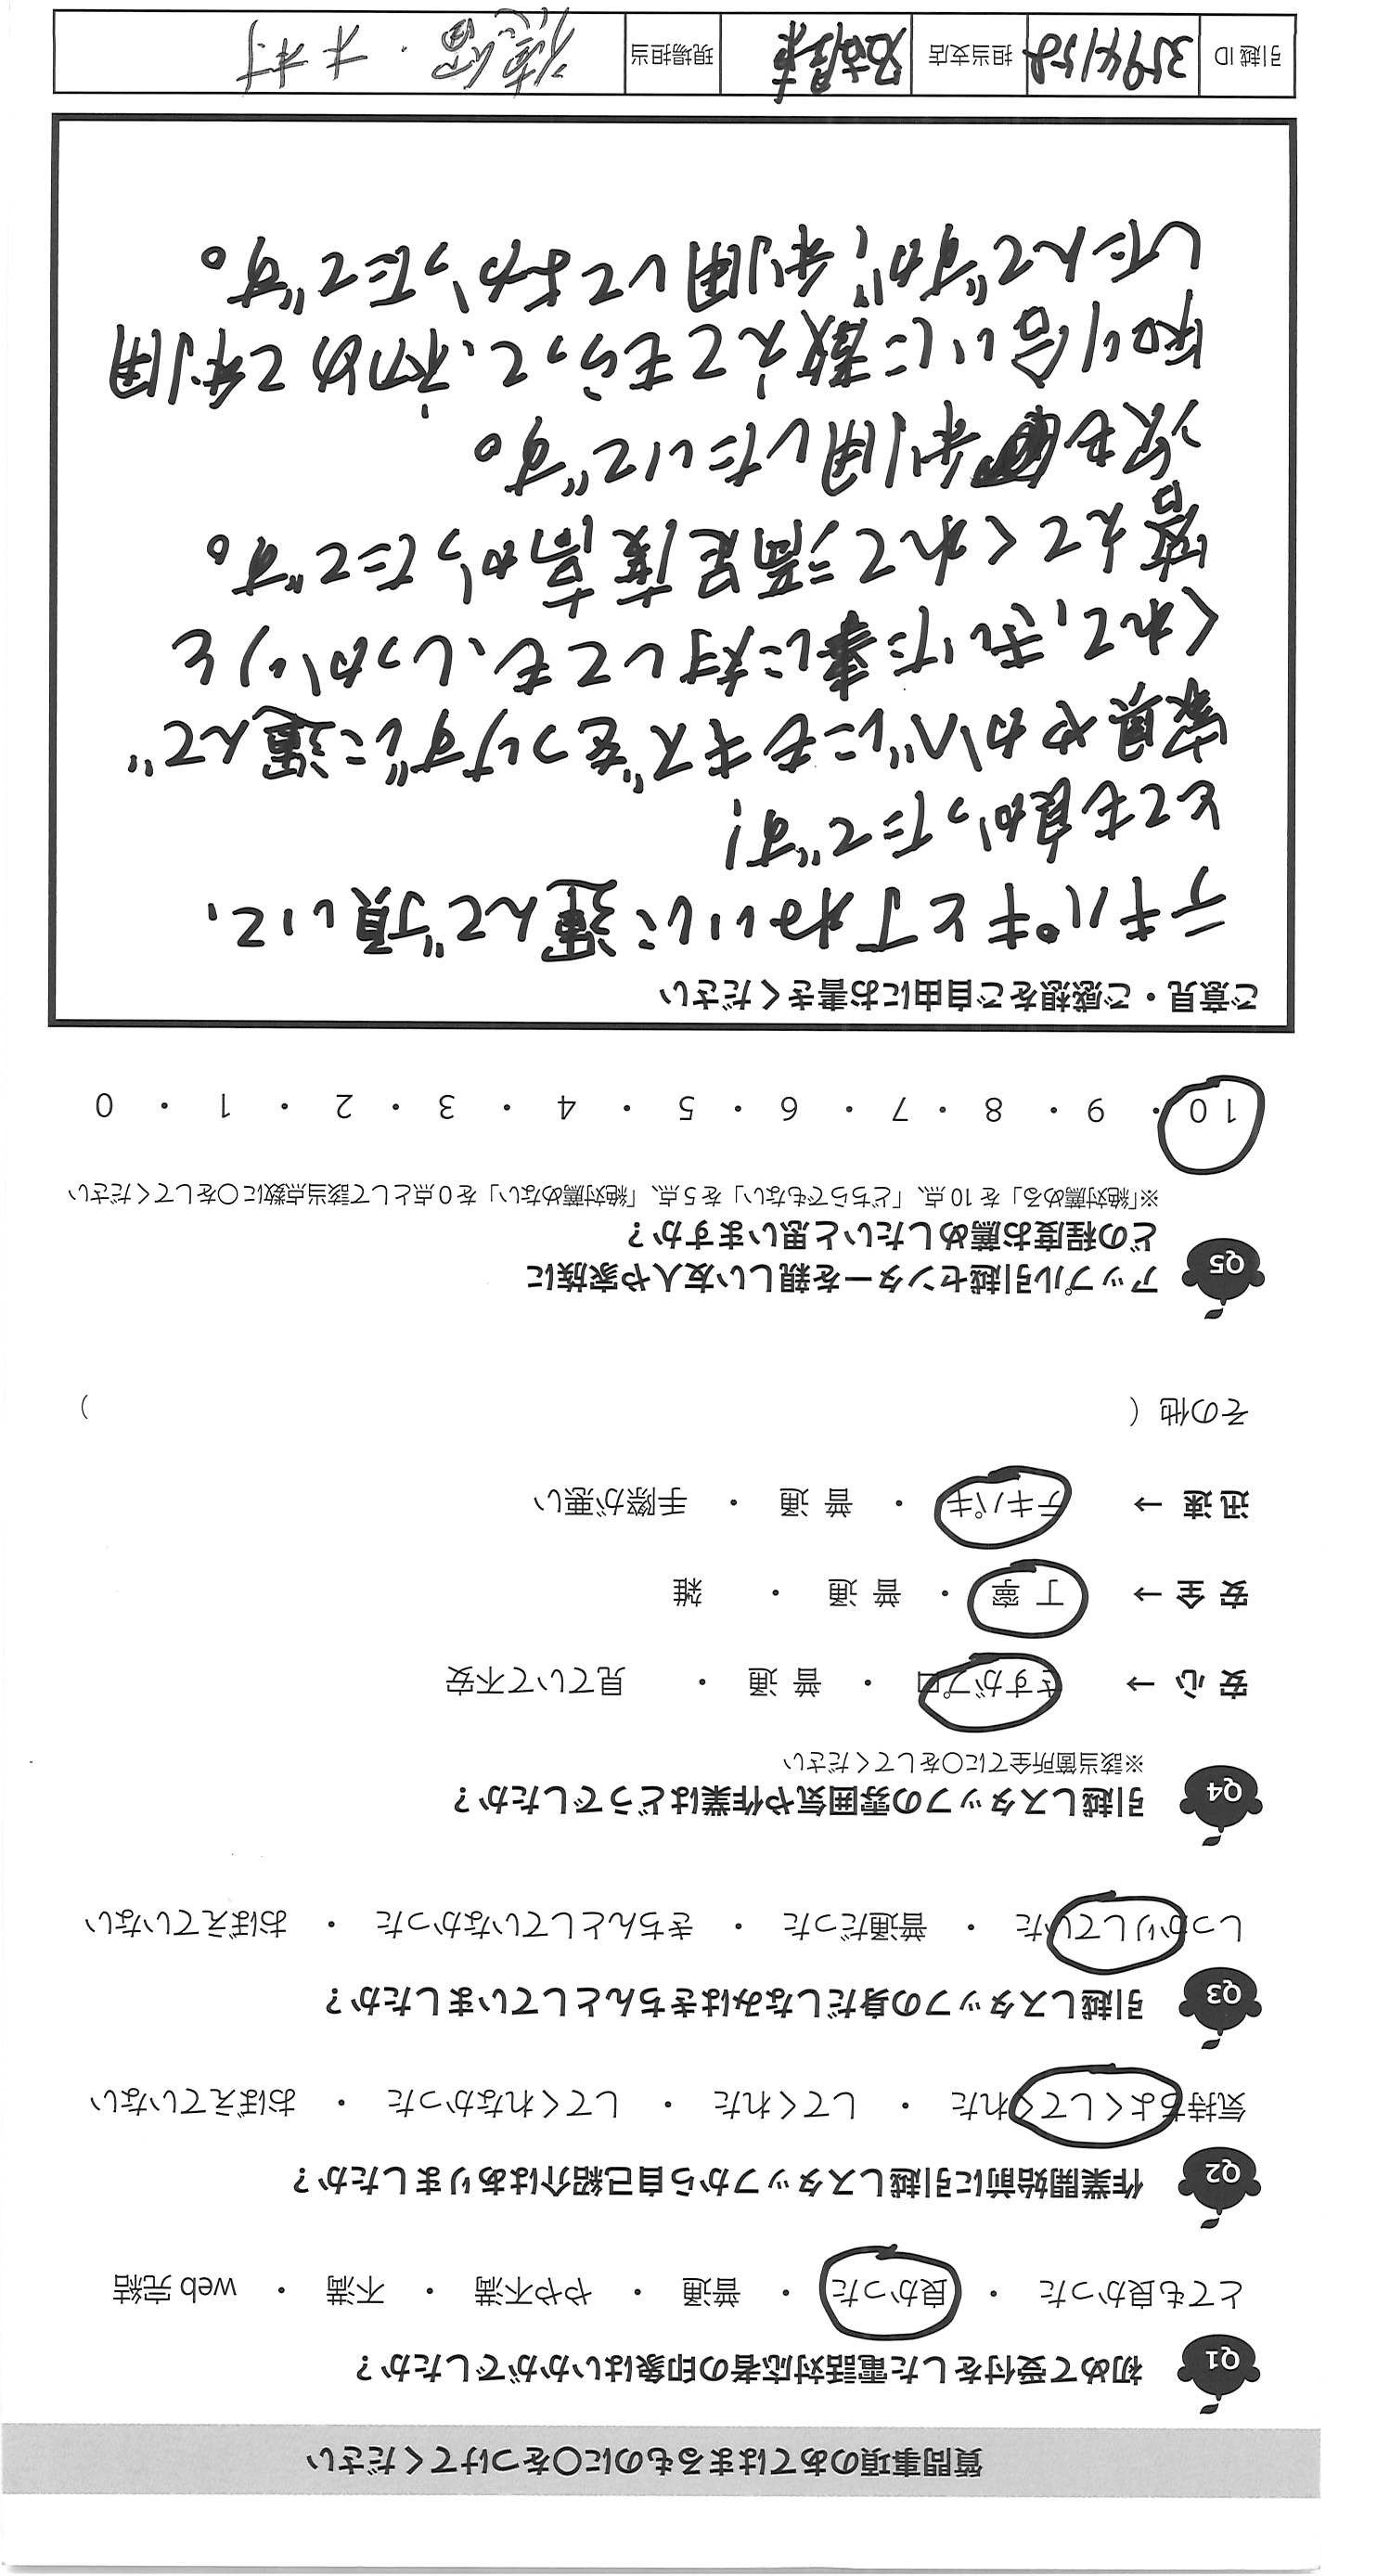 質問事項のあてはまるものに〇をつけてください
Q1 初めて受付をした電話対応者の印象はいかがでしたか？
とても良かった ・ 良かった ・ 普通 ・ やや不満 ・ 不満 ・ web 完結
Q2 作業開始前に引越しスタッフから自己紹介はありましたか？
気持ちよくしてくれた ・ してくれた ・ してくれなかった ・ おぼえていない
Q3 引越しスタッフの身だしなみはきちんとしていましたか？
しっかりしていた ・ 普通だった ・ きちんとしていなかった ・ おぼえていない
Q4 引越しスタッフの雰囲気や作業はどうでしたか？
※該当箇所全てに〇をしてください
安 心 → さすがプロ ・ 普 通 ・ 見ていて不安
安 全 → 丁 寧 ・ 普 通 ・ 雑
迅 速 → テキパキ ・ 普 通 ・ 手際が悪い
その他（ ）
Q5 アップル引越センターを親しい友人や家族に
どの程度お薦めしたいと思いますか？
※「絶対薦める」を 10 点、「どちらでもない」を 5 点、「絶対薦めない」を 0 点として該当点数に〇をしてください
10 ・ 9 ・ 8 ・ 7 ・ 6 ・ 5 ・ 4 ・ 3 ・ 2 ・ 1 ・ 0
ご意見・ご感想をご自由にお書きください
テキパキと丁ねいに運んで頂いて、
とても良かったです！
家具やカベにもキズをつけずに運んで
くれて、聞いた事に対しても、しっかりと
答えてくれて満足度高かったです。
次も利用したいです。
知り合いに教えてもらって、初めて利用
したんですが、利用してよかったです。
引越 ID 3594152 担当支店 名古屋東 現場担当 ・木村